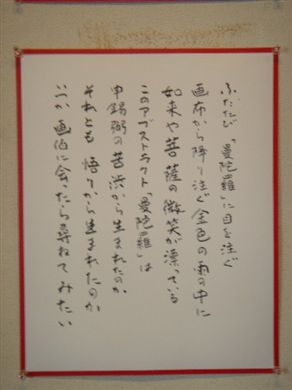 ふたたび「曼陀羅」に目を注ぐ
画布から降り注ぐ金色の雨の中に
如来や菩薩の微笑が漂っている
このアブストラクト「曼陀羅」は
申錫弼の苦渋から生まれたのか
それとも 悟りから生まれたのか
いつか 画伯に会ったら尋ねてみたい